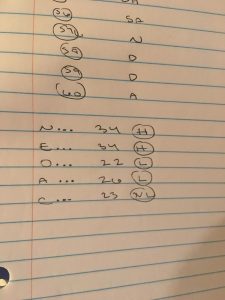 58 SA
59 N
58 D
59 D
60 A
N... 34 H
E... 34 H
O... 22 L
A... 26 L
C... 23 NL